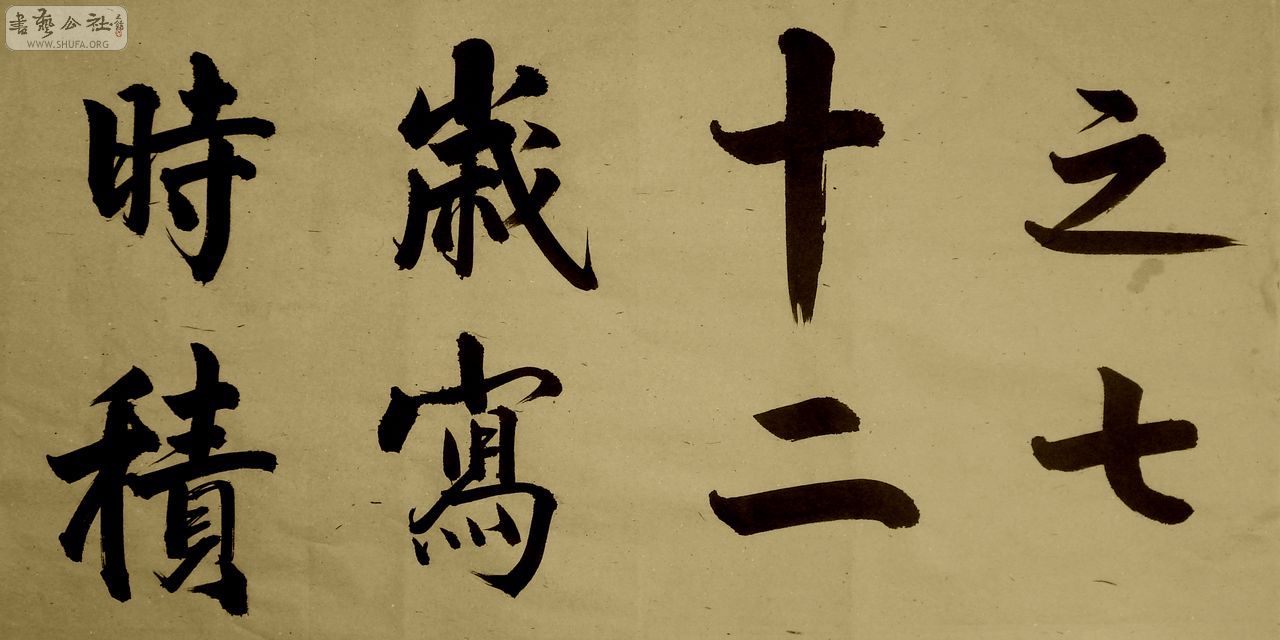 之七
十二
歲寫
時積
書藝公社
WWW.SHUFA.ORG